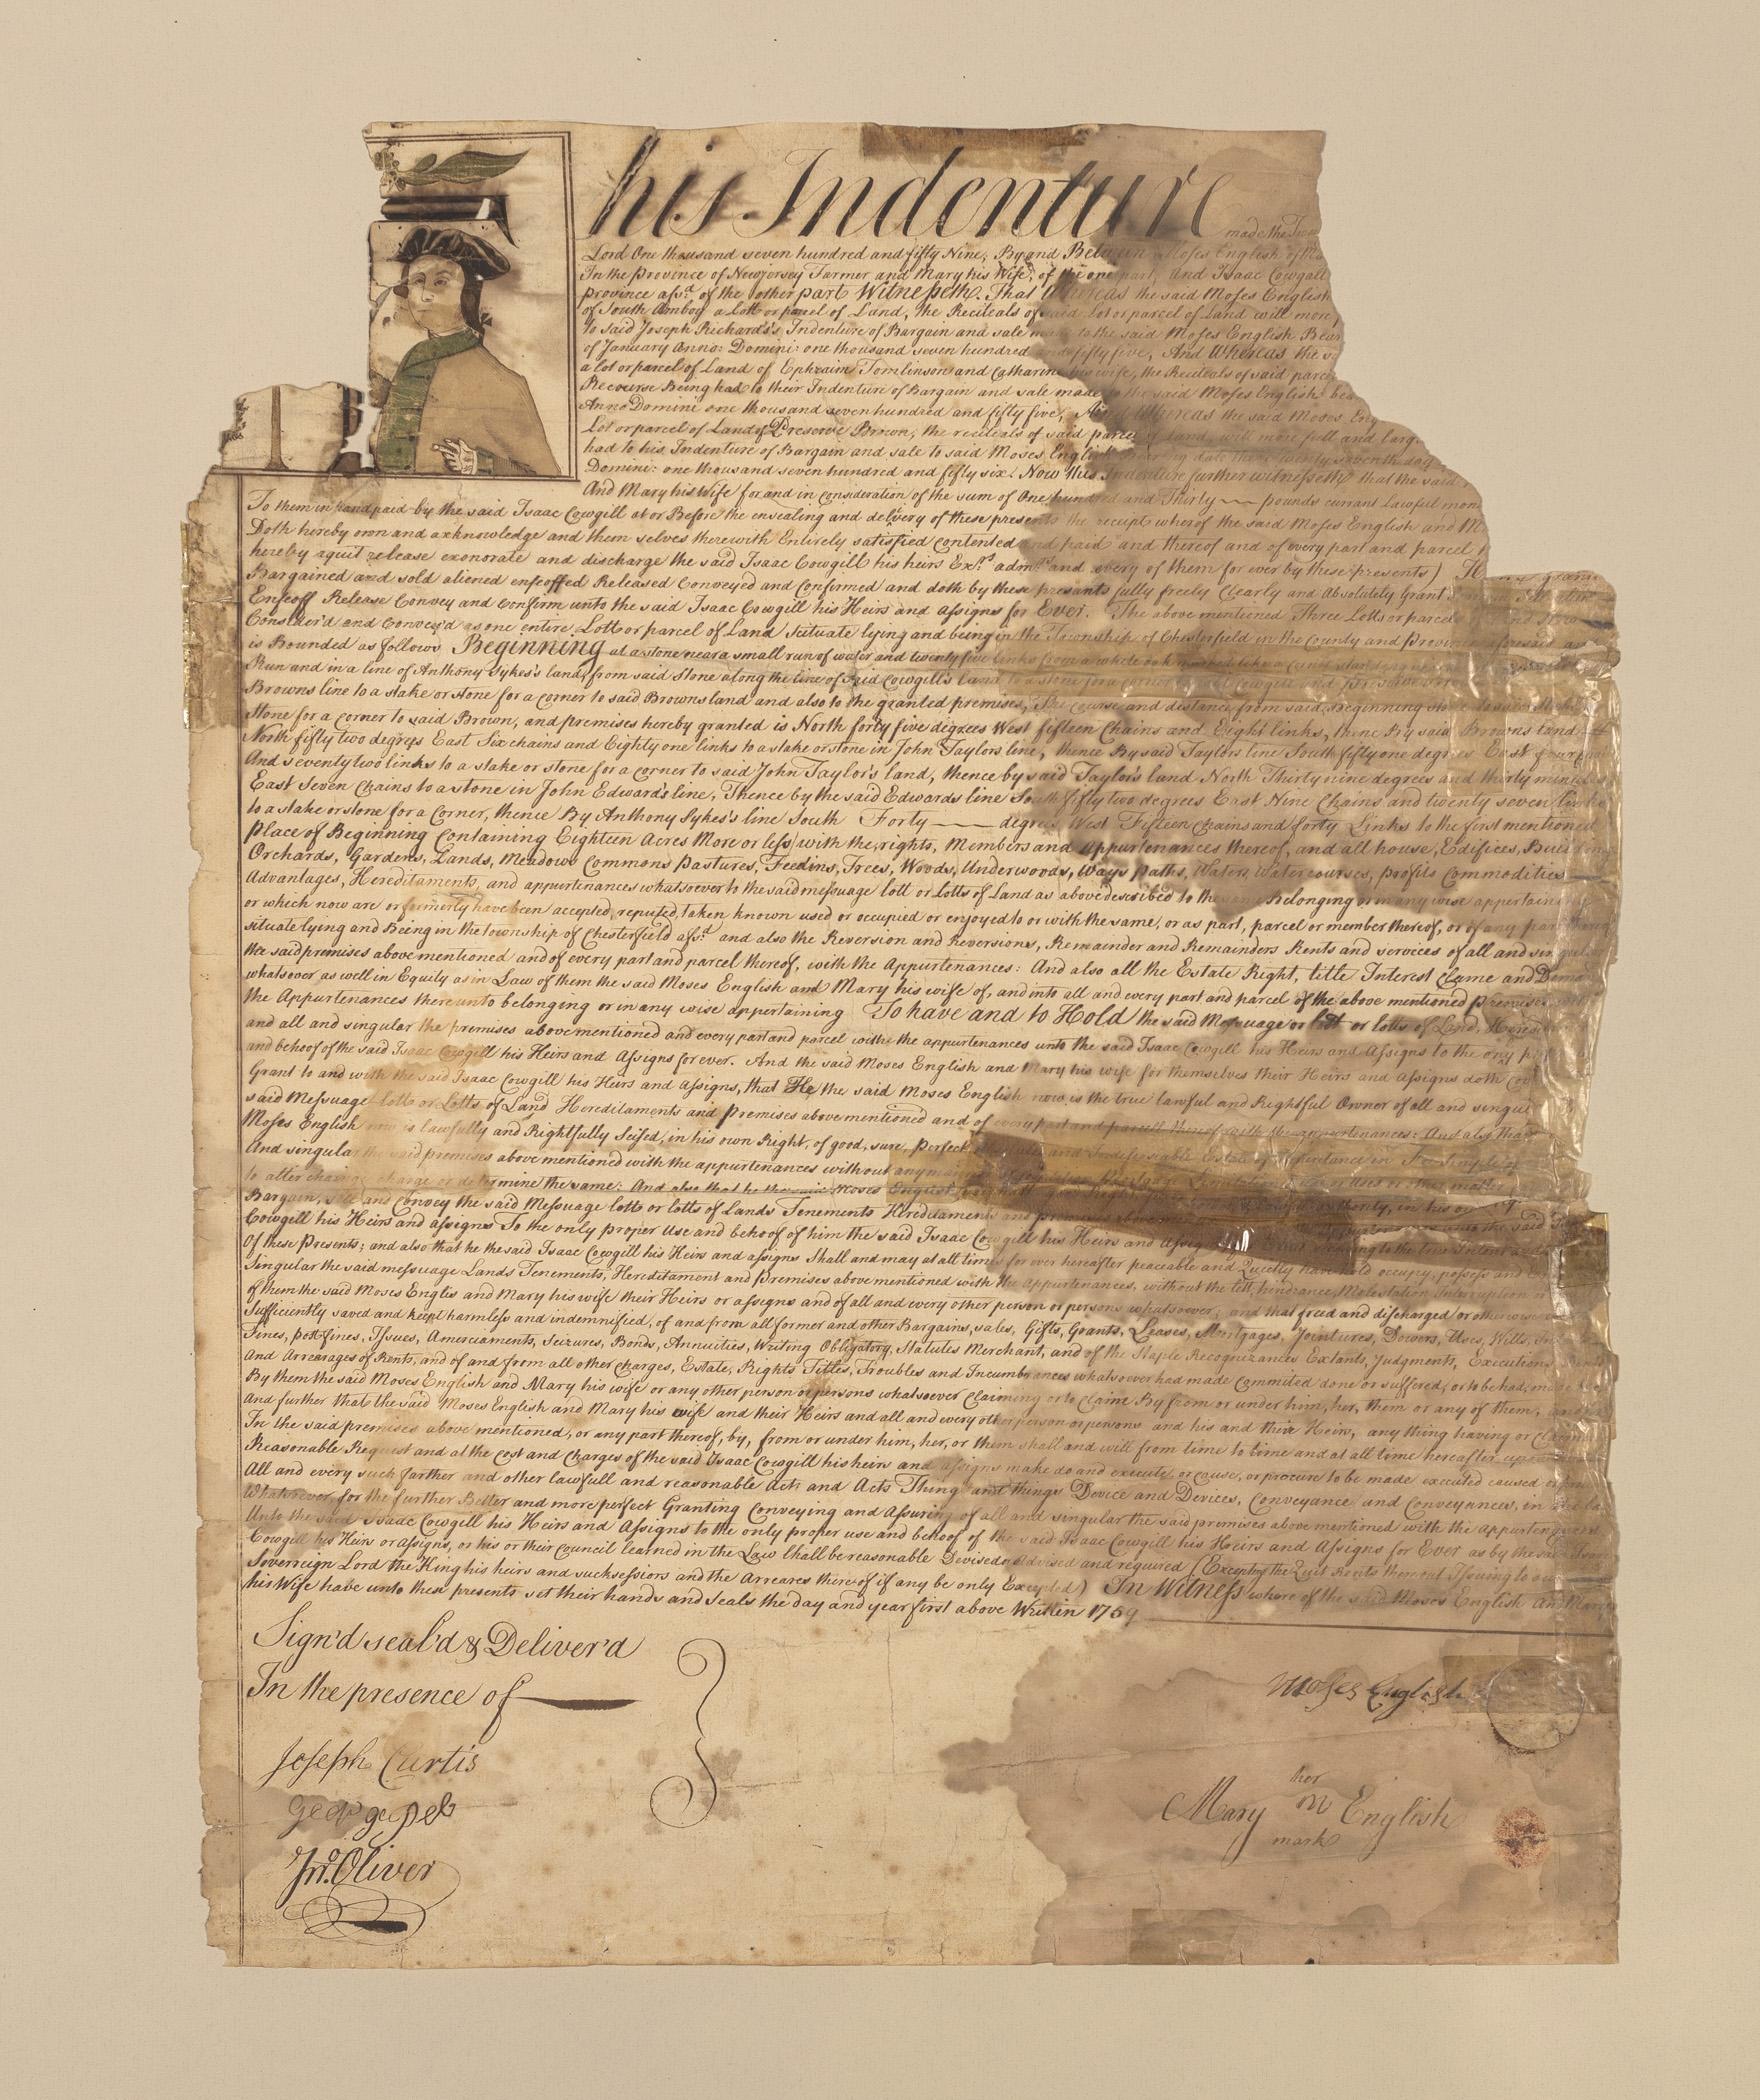 his Indenture made the
Lord One thousand seven hundred and fifty Nine, By and Between Moses English of
In the Province of New Jersey Farmer and Mary his Wife, of the one part, and Isaac Cowgall
province afs.d of the other part Witnesseth. That Whereas the said Moses English
of South Amboy a Lott or parcel of Land, the Reciteals of said Lot or parcel of Land will more
to said Joseph Richards's, Indenture of Bargain and sale made to the said Moses English Bear
of January Anno: Domini: one thousand seven hundred and fifty five, And Whereas the
a lot or parcel of Land of Ephraim Tomlinson and Catharine his wife, the Reciteals of said parce
Recourse Being had to their Indenture of Bargain and sale made to the said Moses English bea
Anno Domini one thousand seven hundred and fifty five, And Whereas the said Moses Eng
Lot or parcel of Land of Preserve Brown, the reciteals of said parcel of Land, will more full and larg
had to his Indenture of Bargain and sale to said Moses English Bearing date the twenty seventh day
Domini: one thousand seven hundred and fifty six: Now this Indenture further witnesseth that the said
And Mary his Wife for and in consideration of the sum of One hundred and Thirty pounds currant Lawful mon
To them in hand paid by the said Isaac Cowgill at or Before the ensealing and delivery of these presents the receipt wherof the said Moses English and M
Doth hereby own and acknowledge and them selves therewith Entirely satisfied contented and paid and thereof and of every part and parcel
hereby aquit release exonorate and discharge the said Isaac Cowgill his heirs Ex.rs adm.rs and every of them for ever by these presents)
Bargained and sold aliened enfeoffed Released Conveyed and Confirmed and doth by these presents fully freely Clearly and Absolutely Grant
Enfeoff Release Convey and Confirm unto the said Isaac Cowgill his Heirs and Assigns for Ever. The above mentioned Three Lotts or parcels
Consider'd and Convey'd as one entire Lott or parcel of Land Situate lying and being in the Township of Chesterfield in the County and Province aforesaid and
is Bounded as follows Beginning at a stone near a small run of water and twenty five links from a white oak
Run and in a line of Anthony Sykes's land, from said stone along the line of said Cowgill's Land to a stone for a corner to said Cowgill and
Browns line to a stake or stone for a corner to said Browns land and also to the granted premises, The course and distance from said Beginning
stone for a corner to said Brown, and premises hereby granted is North forty five degrees West fifteen Chains and Eight links, thence By said Browns land
North fifty two degrees East Six chains and Eighty one links to a stake or stone in John Taylors line, thence By said Taylors line South fifty one degrees East
And seventy two links to a stake or stone for a corner to said John Taylor's land, thence by said Taylor's land North Thirty nine degrees and thirty minutes
East Seven Chains to a stone in John Edward's line, Thence by the said Edwards line South fifty two degrees East Nine Chains and twenty seven links
to a stake or stone for a Corner, thence By Anthony Sykes's line South Forty degrees West Fifteen Chains and forty Links to the first mentioned
place of Beginning Containing Eighteen Acres More or less, with the rights, Members and Appurtenances thereof, and all house, Edifices, Building
Orchards, Gardens, Lands, Meadows Commons Pastures, Feedins, Trees, Woods, Underwoods, Ways Paths, Waters, Watercourses, profits Commodities
Advantages, Hereditaments, and appurtenances whatsoever to the said messuage lott or lotts of Land as above described to the same Belonging or in any wise appertaining
or which now are or formerly have been accepted, reputed, taken known used or occupied or enjoyed to or with the same, or as part, parcel or member thereof, or of any part
situate lying and Being in the township of Chesterfield afs.d and also the Reversion and Reversions, Remainder and Remainders Rents and services of all and singular
the said premises above mentioned and of every part and parcel thereof, with the Appurtenances: And also all the Estate Right, title Interest Clame and Dema
whatsoever as well in Equity as in Law of them the said Moses English and Mary his wife of, and into all and every part and parcel of the above mentioned premises
the Appurtenances thereunto belonging or in any wise appertaining To have and to Hold the said Messuage or lott or lotts of Land,
and all and singular the premises above mentioned and every part and parcel withe the appurtenances unto the said Isaac Cowgill his Heirs and Assigns to the only
and behoof of the said Isaac Cowgill his Heirs and Assigns for ever. And the said Moses English and Mary his wife for themselves their Heirs and assigns doth Cov
Grant to and with the said Isaac Cowgill his Heirs and Assigns, that He the said Moses English now is the true lawful and Rightful Owner of all and singul
said Messuage lott or Lotts of Land Hereditaments and premises above mentioned and of every part and parcell thereof with the appurtenances: And also that
Moses English now is lawfully and Rightfully Seised, in his own Right, of good, sure, perfect and Indefeasible Estate of Inheritance in Fee Simple of
And singular the said premises above mentioned with the appurtenances without any
to alter change charge or determine the same: And also that he the said Moses English
Bargain, sell and Convey the said Messuage lott or lotts of Lands Tenements Hereditaments and premises
Cowgill his Heirs and assigns To the only proper Use and behoof of him the said Isaac Cowgill his Heirs and Assigns
Of these Presents; and also that he the said Isaac Cowgill his Heirs and assigns Shall and may at all times for ever hereafter peaceable and Quietly have hold occupy, possess and
Singular the said messuage Lands Tenements, Hereditament and Premises above mentioned with the appurtenances, without the lett, hindrance, Molestation Interruption or
of them the said Moses Englis and Mary his wife their Heirs or assigns and of all and every other person or persons whatsoever; and that freed and discharged or otherwise
Sufficiently saved and kept harmless and indemnified, of and from all former and other Bargains, sales, Gifts, Grants, Leases, Mortgages, Jointures, Dowers, Uses, Wills,
Fines, postfines, Issues, Amerciaments, Seizures, Bonds, Annuities, Writing Obligatory, Statutes Merchant, and of the Staple Recognizances Extants, Judgments, Executions
And Arrearages of Rents, and of and from all other Charges, Estate, Rights Titles, Troubles and Incumbrances whatsoever had made Commited done or suffered, or to be had, made
By them the said Moses English and Mary his wife or any other person or persons whatsoever Claiming or to Claime By from or under him, her, them or any of them;
And further that the said Moses English and Mary his wife and their Heirs and all and every other person or persons and his and their Heirs, any thing having or Claiming
In the said premises above mentioned, or any part thereof, by, from or under him, her, or them shall and will from time to time and at all time hereafter upon
Reasonable Request and at the cost and Charges of the said Isaac Cowgill his heirs and assigns make do and execute, or cause, or procure to be made executed caused or
All and every such farther and other lawfull and reasonable Act and Acts Thing and things Device and Devices, Conveyance and Conveyances, in
Whatsoever, for the further Better and more perfect Granting Conveying and Assuring of all and singular the said premises above mentioned with the Appurtenances
Unto the said Isaac Cowgill his Heirs and Assigns to the only proper use and behoof of the said Isaac Cowgill his Heirs and Assigns for Ever as by the said Isaac
Cowgill his Heirs or assigns, or his or their Council learned in the Law shall be reasonable Devised advised and required (Except the Quit Rents thereout Issuing to our
Sovereign Lord the King his heirs and sucksessiors and the Arreares thereof if any be only Excepted) In Witness where of the said Moses English And Mary
his Wife have unto these presents set their hands and Seals the day and year first above Written 1759
Sign'd seal'd & Deliver'd
In the presence of
Moses English
Joseph Curtis
George
her
Mary M English
mark
Jno. Oliver